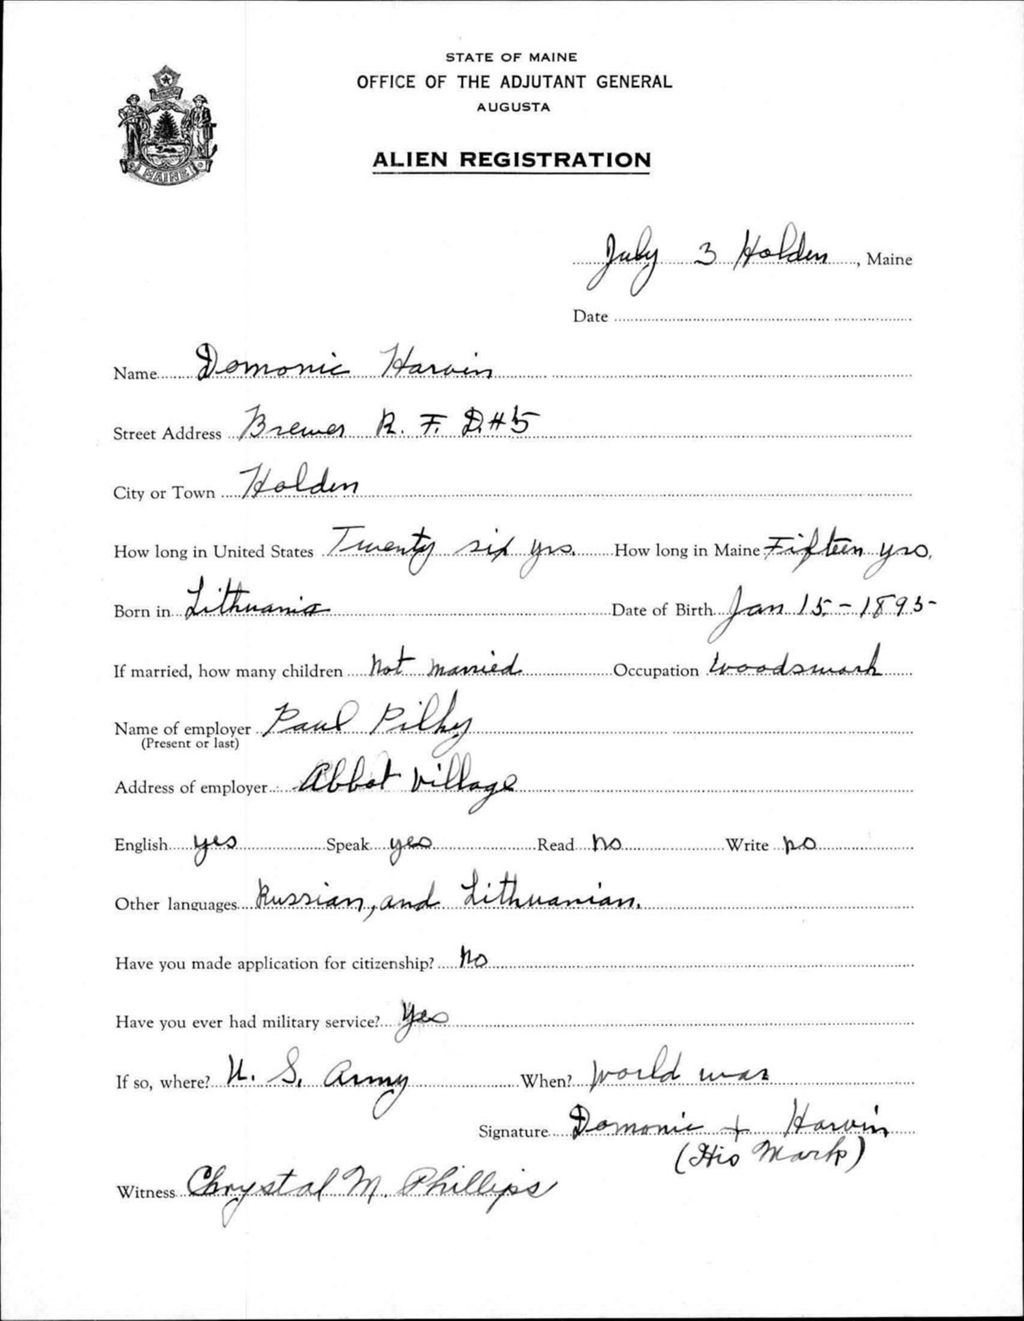 STATE OF MAINE
OFFICE OF THE ADJUTANT GENERAL
AUGUSTA
ALIEN REGISTRATION
MAINE
July 3 Holden, Maine
Date
Name Domonic Harvin
Street Address Brewer R. F. D. # 5
City or Town Holden
How long in United States Twenty six yrs. How long in Maine Fifteen yrs.
Born in Lithuania Date of Birth Jan 15 - 1895
If married, how many children Not married Occupation Woodswork
Name of employer Paul
(Present or last)
Address of employer Abbot Village
English yes Speak yes Read no Write no
Other languages Russian, and Lithuanian.
Have you made application for citizenship? No
Have you ever had military service? Yes
If so, where? U. S. Army When? World war
Signature Domonic + Harvin
(His Mark)
Witness Chrystal M. Phillips